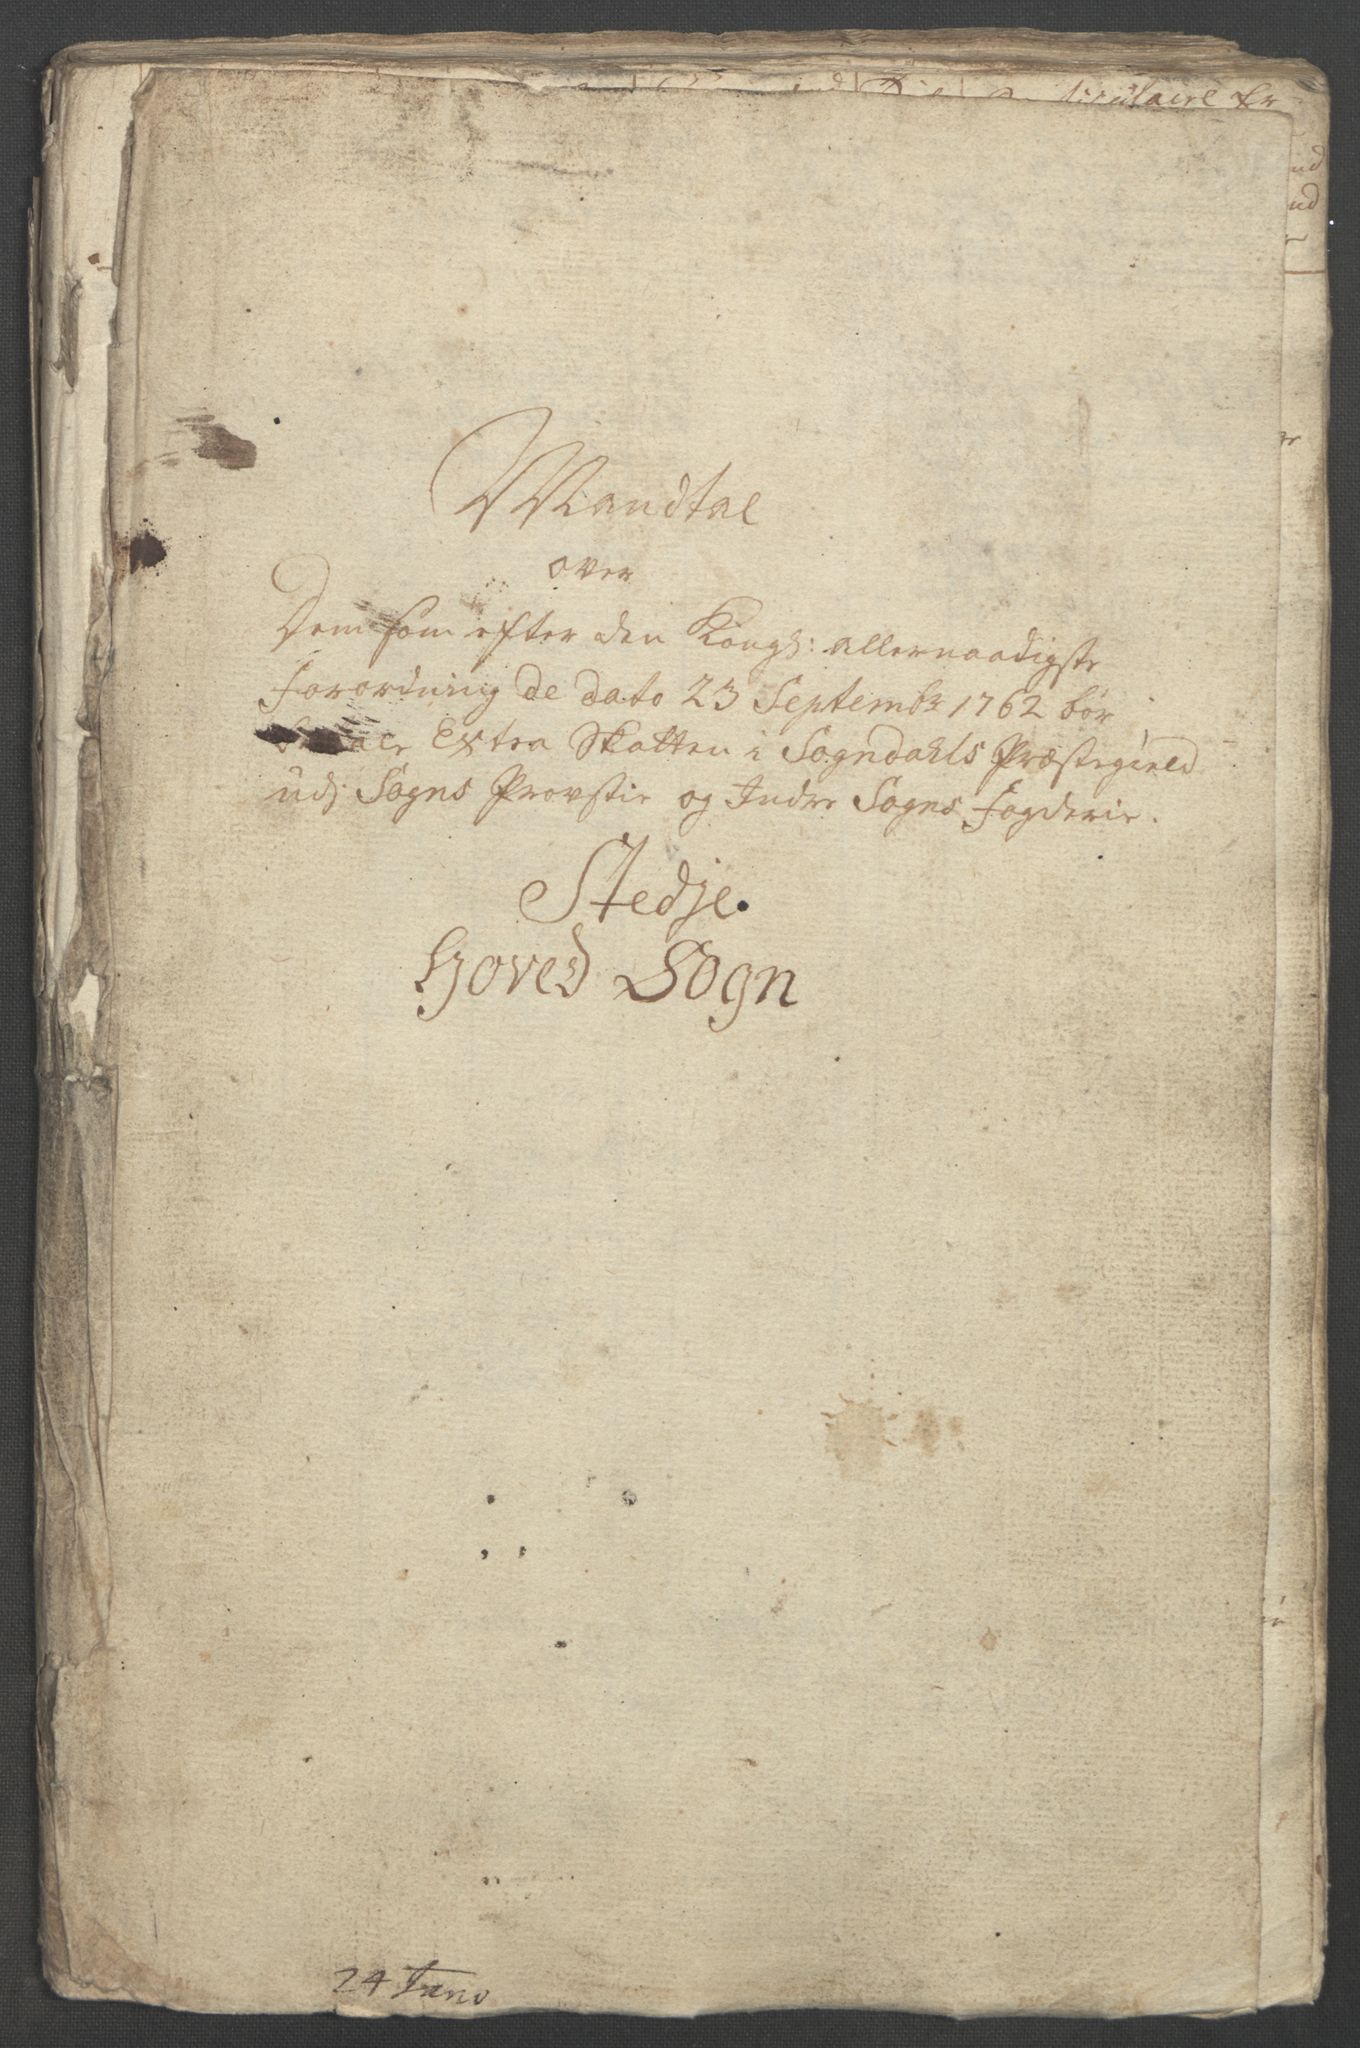 Mandtal
over
Dem som efter den Kongl: allernaadigste
Forordning de dato 23 Septembr 1762 bør
betale Extra Skatten i Sogndahls Præstegield
udj Sogns Provstie og Indre Sogns Fogderie.
Stedje.
Hoved Sogn
24